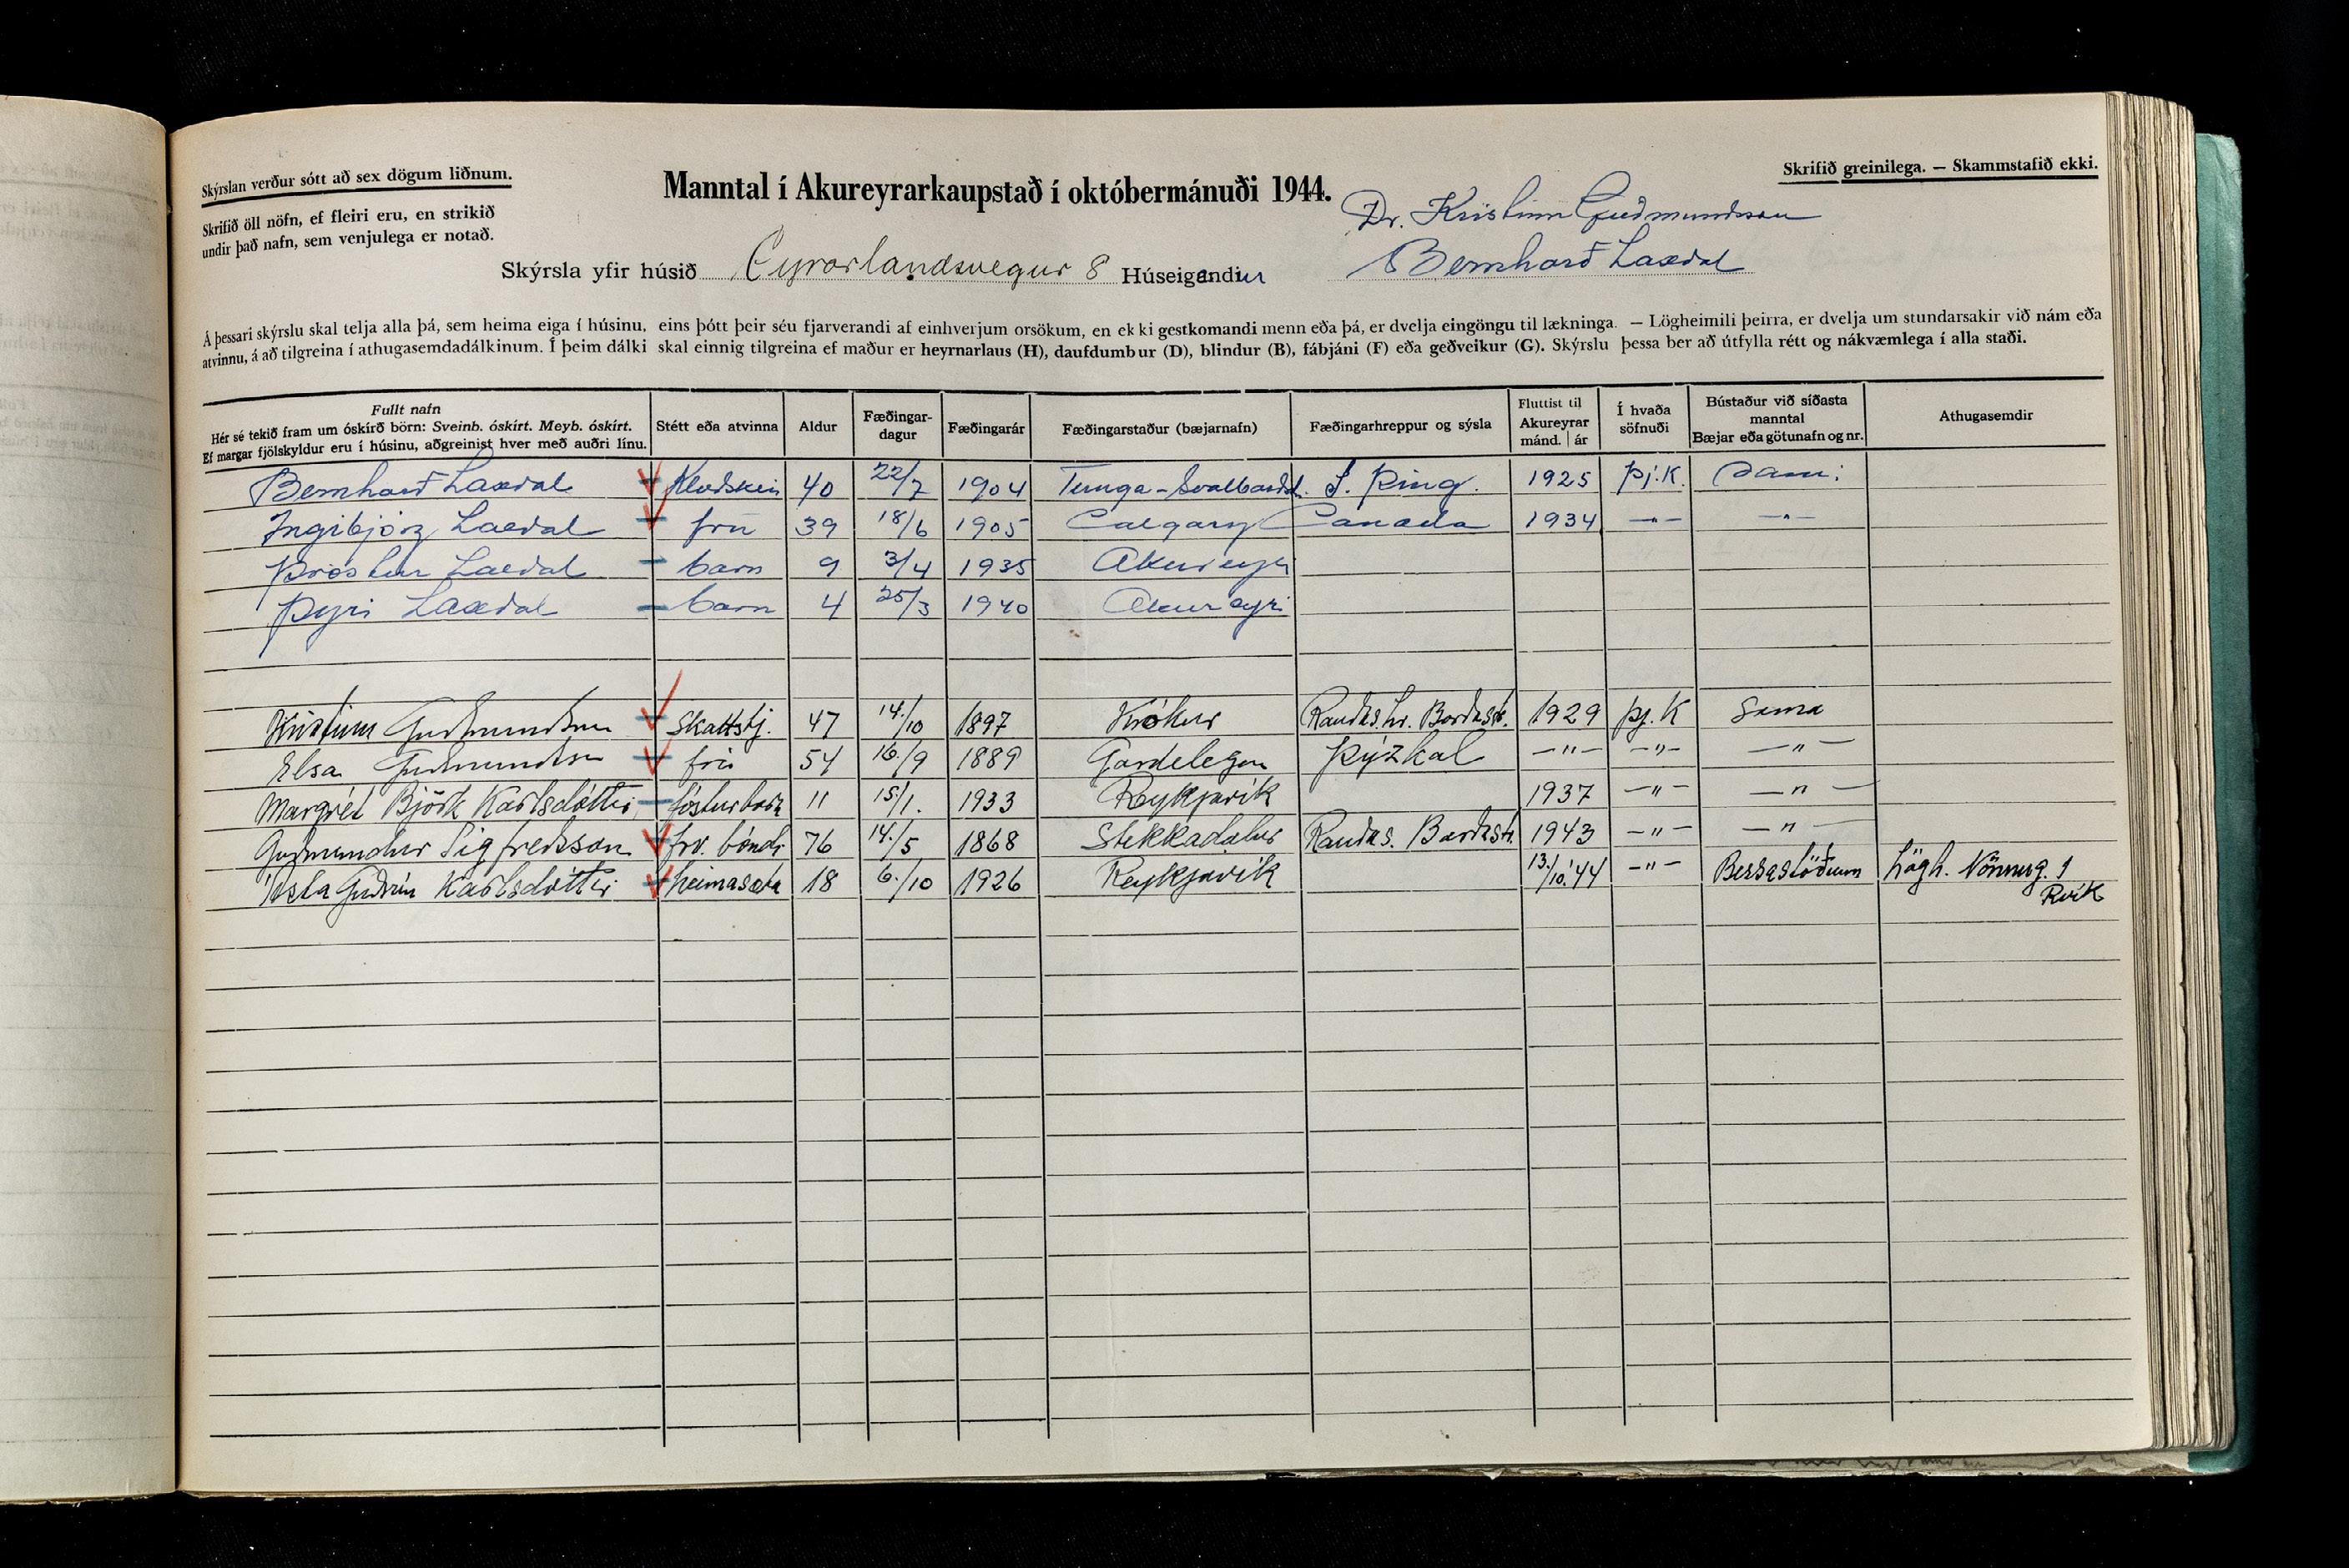 Skýrslan verður sótt að sex dögum liðnum.
Skrifið öll nöfn, ef fleiri eru, en strikið
undir það nafn, sem venjulega er notað.
Manntal í Akureyrarkaupstað í októbermánuði 1944.
Skrifið greinilega. — Skammstafið ekki.
Dr. Kristinn Guðmundsson
Skýrsla yfir húsið Eyrarlandsvegur 8 Húseigendur Bernharð Laxdal
Á þessari skýrslu skal telja alla þá, sem heima eiga í húsinu, eins þótt þeir séu fjarverandi af einhverjum orsökum, en ekki gestkomandi menn eða þá, er dvelja eingöngu til lækninga. — Lögheimili þeirra, er dvelja um stundarsakir við nám eða
atvinnu, á að tilgreina í athugasemdadálkinum. Í þeim dálki skal einnig tilgreina ef maður er heyrnarlaus (H), daufdumbur (D), blindur (B), fábjáni (F) eða geðveikur (G). Skýrslu þessa ber að útfylla rétt og nákvæmlega í alla staði.
Fullt nafn
Hér sé tekið fram um óskírð börn: Sveinb. óskírt. Meyb. óskírt.
Ef margar fjölskyldur eru í húsinu, aðgreinist hver með auðri línu.
Stétt eða atvinna
Aldur
Fæðingar-
dagur
Fæðingarár
Fæðingarstaður (bæjarnafn)
Fæðingarhreppur og sýsla
Fluttist til
Akureyrar
mánd. | ár
Í hvaða
söfnuði
Bústaður við síðasta
manntal
Bæjar eða götunafn og nr.
Athugasemdir
Bernharð Laxdal Klæðskeri 40 22/7 1904 Tunga - Svalbarðsstr. S. Þing. 1925 Þj.K. Sami
Ingibjörg Laxdal frú 39 18/6 1905 Calgary Canada 1934 -"- -"-
Þröstur Laxdal barn 9 3/4 1935 Akureyri
Þyri Laxdal barn 4 25/3 1940 Akureyri
Kristinn Guðmundsson Skattstj. 47 14./10 1897 Krókur Rauðas.hr. Barðastr. 1929 Þj. K Sama
Elsa Guðmundsson frú 54 16./9 1889 Gardelegen Þýzkal -"- -"- -"-
Margrét Björk Karlsdóttir fósturbarn 11 15/1. 1933 Reykjavík 1937 -"- -"-
Guðmundur Sigfreðsson frv. bóndi 76 14./5 1868 Stekkadalur Rauðas. Barðastr. 1943 -"- -"-
Ásta Guðrún Karlsdóttir heimasæta 18 6./10 1926 Reykjavík 13./10.'44 -"- Bessastöðum Lögh. Nönnug. 1
Rvík